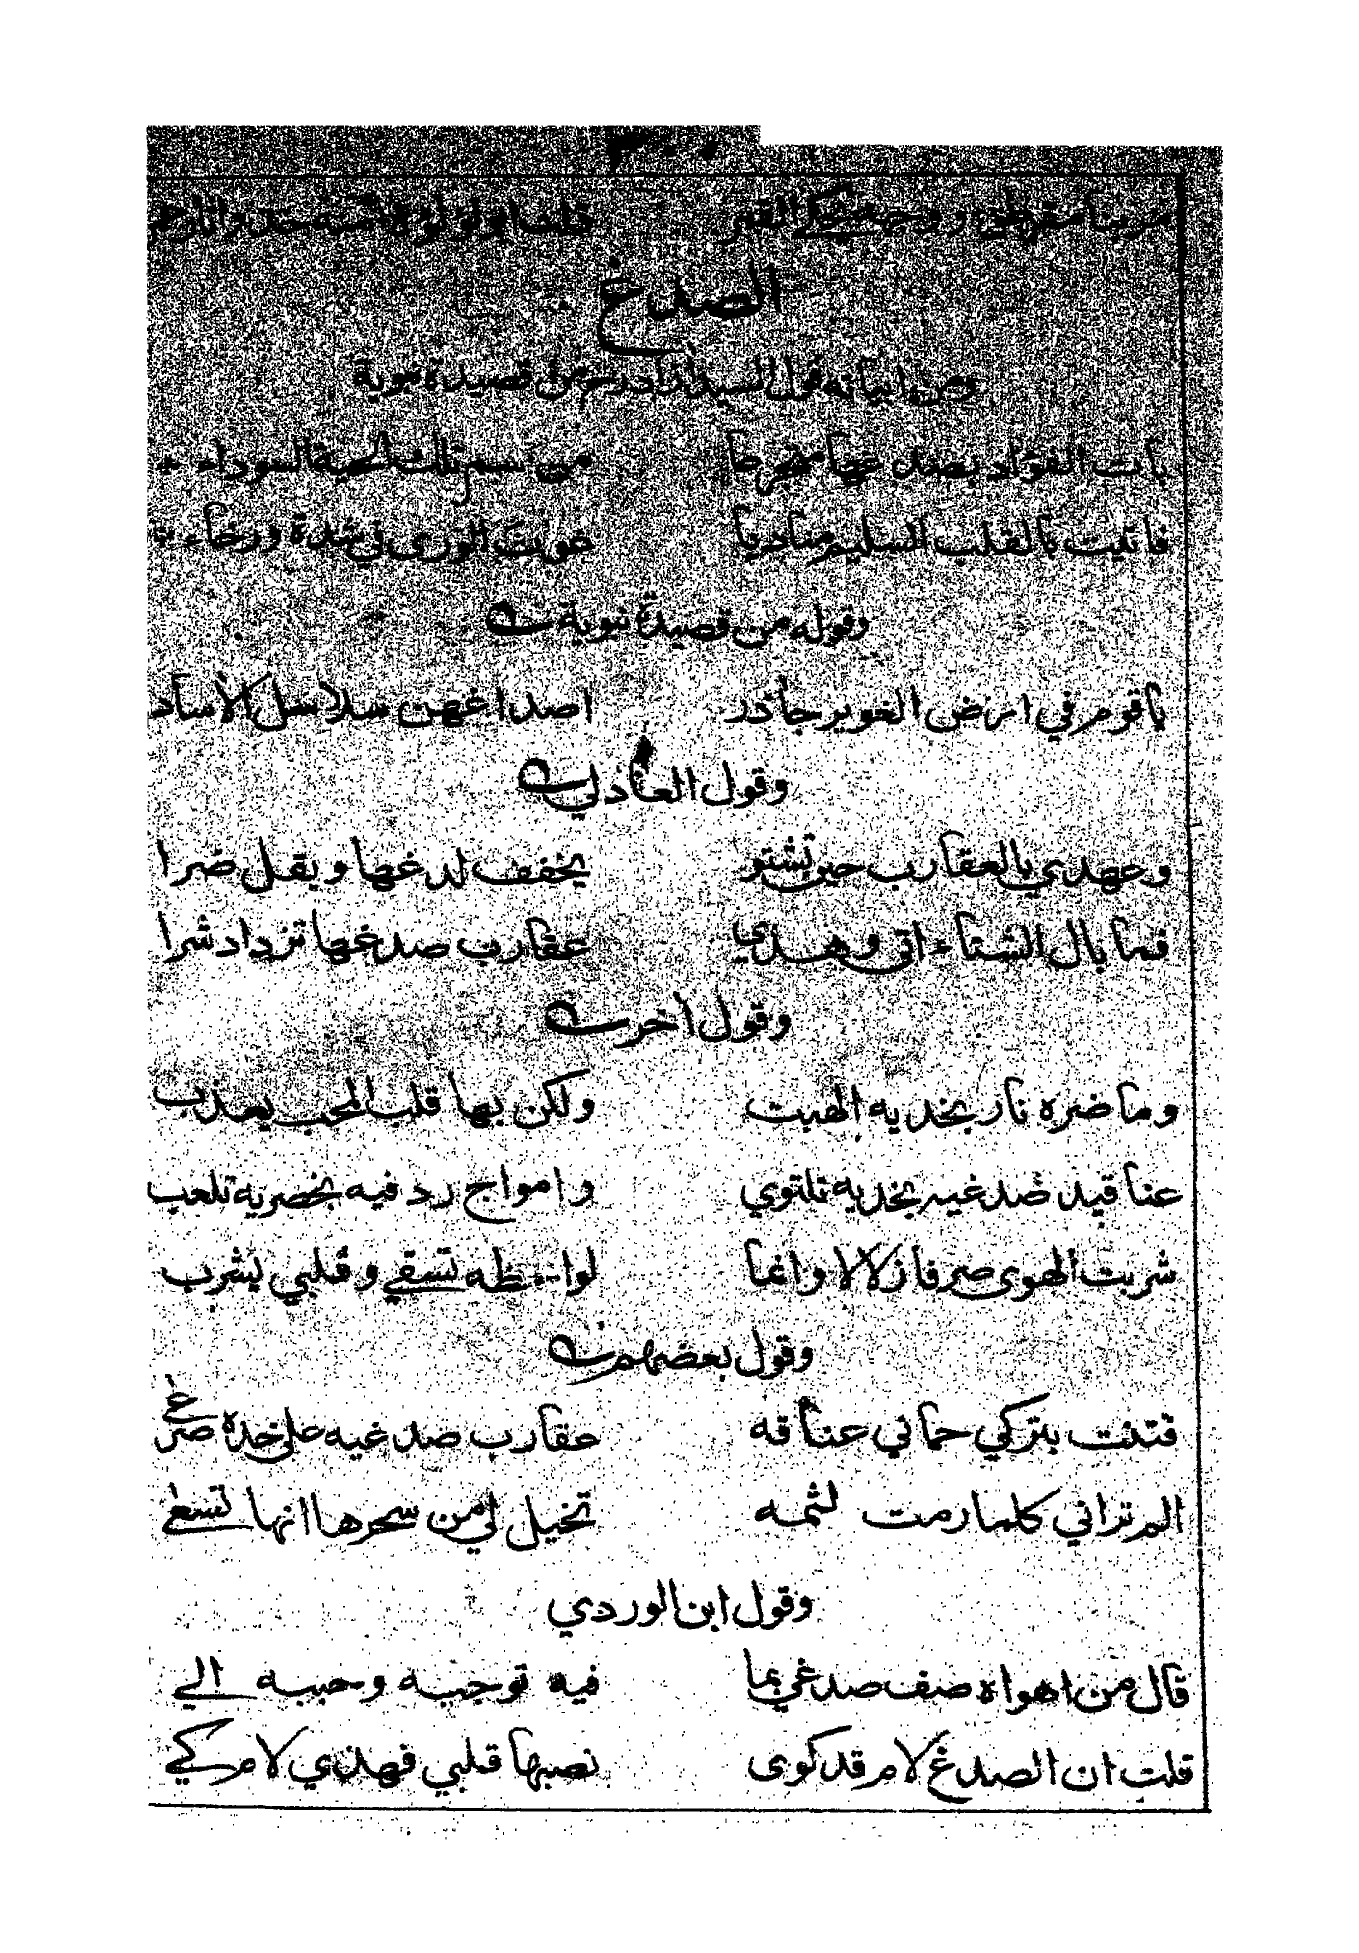 مربنا مقرطق ووجهه يحكي القمر قلت ابو لؤلؤة منه خذوا ثار عمر
الصدغ
ومن ابياته قول السيد ازاد رح من قصيدة نبوية
بات الفؤاد بصدغها متجرعا من سم تلك الحية السوداء
فاتيت بالقلب السليم مناديا غوث الورى في شدة ورخاء
وقوله من قصيدة نبوية
يا قوم في ارض الغوير جآذر اصداغهن سلاسل الآساد
وقول العاذلي
وعهدي بالعقارب حين تشتو يخفف لدغها ويقل ضرا
فما بال الشتاء اتى وهذي عقارب صدغها تزداد شرا
وقول اخر
وما ضره نار بخديه الهبت ولكن بها قلب المحب يعذب
عناقيد صدغيه بخديه تلتوي وامواج ردفيه بخصريه تلعب
شربت الهوى صرفا زلالا وانما لواحظه تسقي وقلبي يشرب
وقول بعضهم
فتنت بتركي حماني عناقه عقارب صدغيه على خده صرغى
الم تراني كلما رمت لثمه تخيل لي من سحرها انها تسعى
وقول ابن الوردي
قال من اهواه صف صدغي بما فيه توجيه وحببه الي
قلت ان الصدغ لام قد كوى نصبها قلبي فهذي لام كي